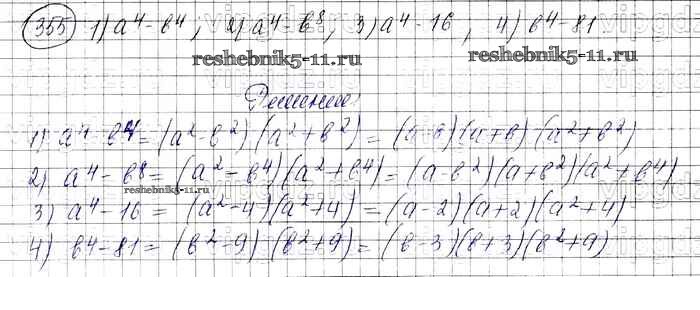 355 1) a⁴-в⁴, 2) a⁴-в⁸, 3) a⁴-16, 4) в⁴-81
reshebnik5-11.ru reshebnik5-11.ru
Решение
1) a⁴-в⁴=(a²-в²)(a²+в²)=(a-в)(a+в)(a²+в²)
2) a⁴-в⁸=(a²-в⁴)(a²+в⁴)=(a-в²)(a+в²)(a²+в⁴)
reshebnik5-11.ru
3) a⁴-16=(a²-4)(a²+4)=(a-2)(a+2)(a²+4)
4) в⁴-81=(в²-9)(в²+9)=(в-3)(в+3)(в²+9)